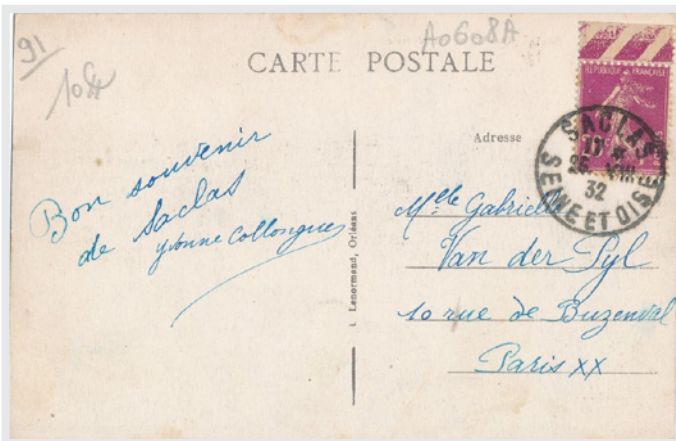 91
A0608A
CARTE POSTALE
REPUBLIQUE FRANÇAISE
SACLAS
26
32
SEINE ET OISE
Adresse
Bon souvenir
de Saclas
Yvonne Collongues
Lenormand, Orléans
Mlle Gabrielle
Van der Pyl
10 rue de Buzenval
Paris XX